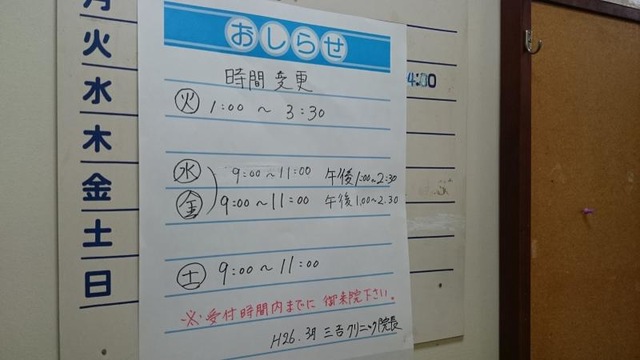 月
火
水
木
金
土
日
4:00
おしらせ
時間変更
火 1:00 ~ 3:30
水 9:00 ~ 11:00 午後1:00~2:30
金 9:00 ~ 11:00 午後1:00~2:30
土 9:00 ~ 11:00
※受付時間内までに 御来院下さい。
H26.3月 三吉クリニック院長